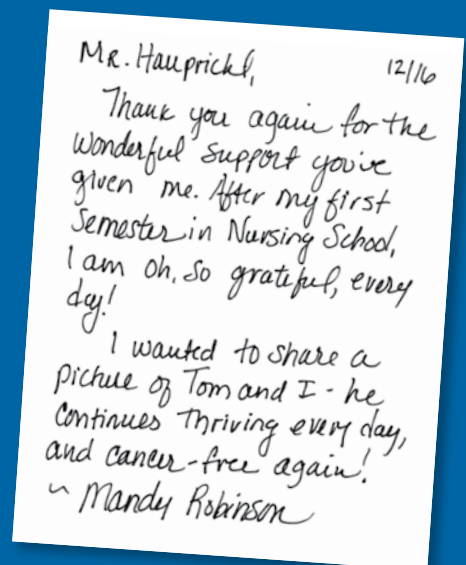 Mr. Hauprickl,
12/16
Thank you again for the
wonderful support you've
given me. After my first
Semester in Nursing School,
I am oh, so grateful, every
day!
I wanted to share a
picture of Tom and I - he
continues thriving every day,
and cancer-free again!
~ Mandy Robinson